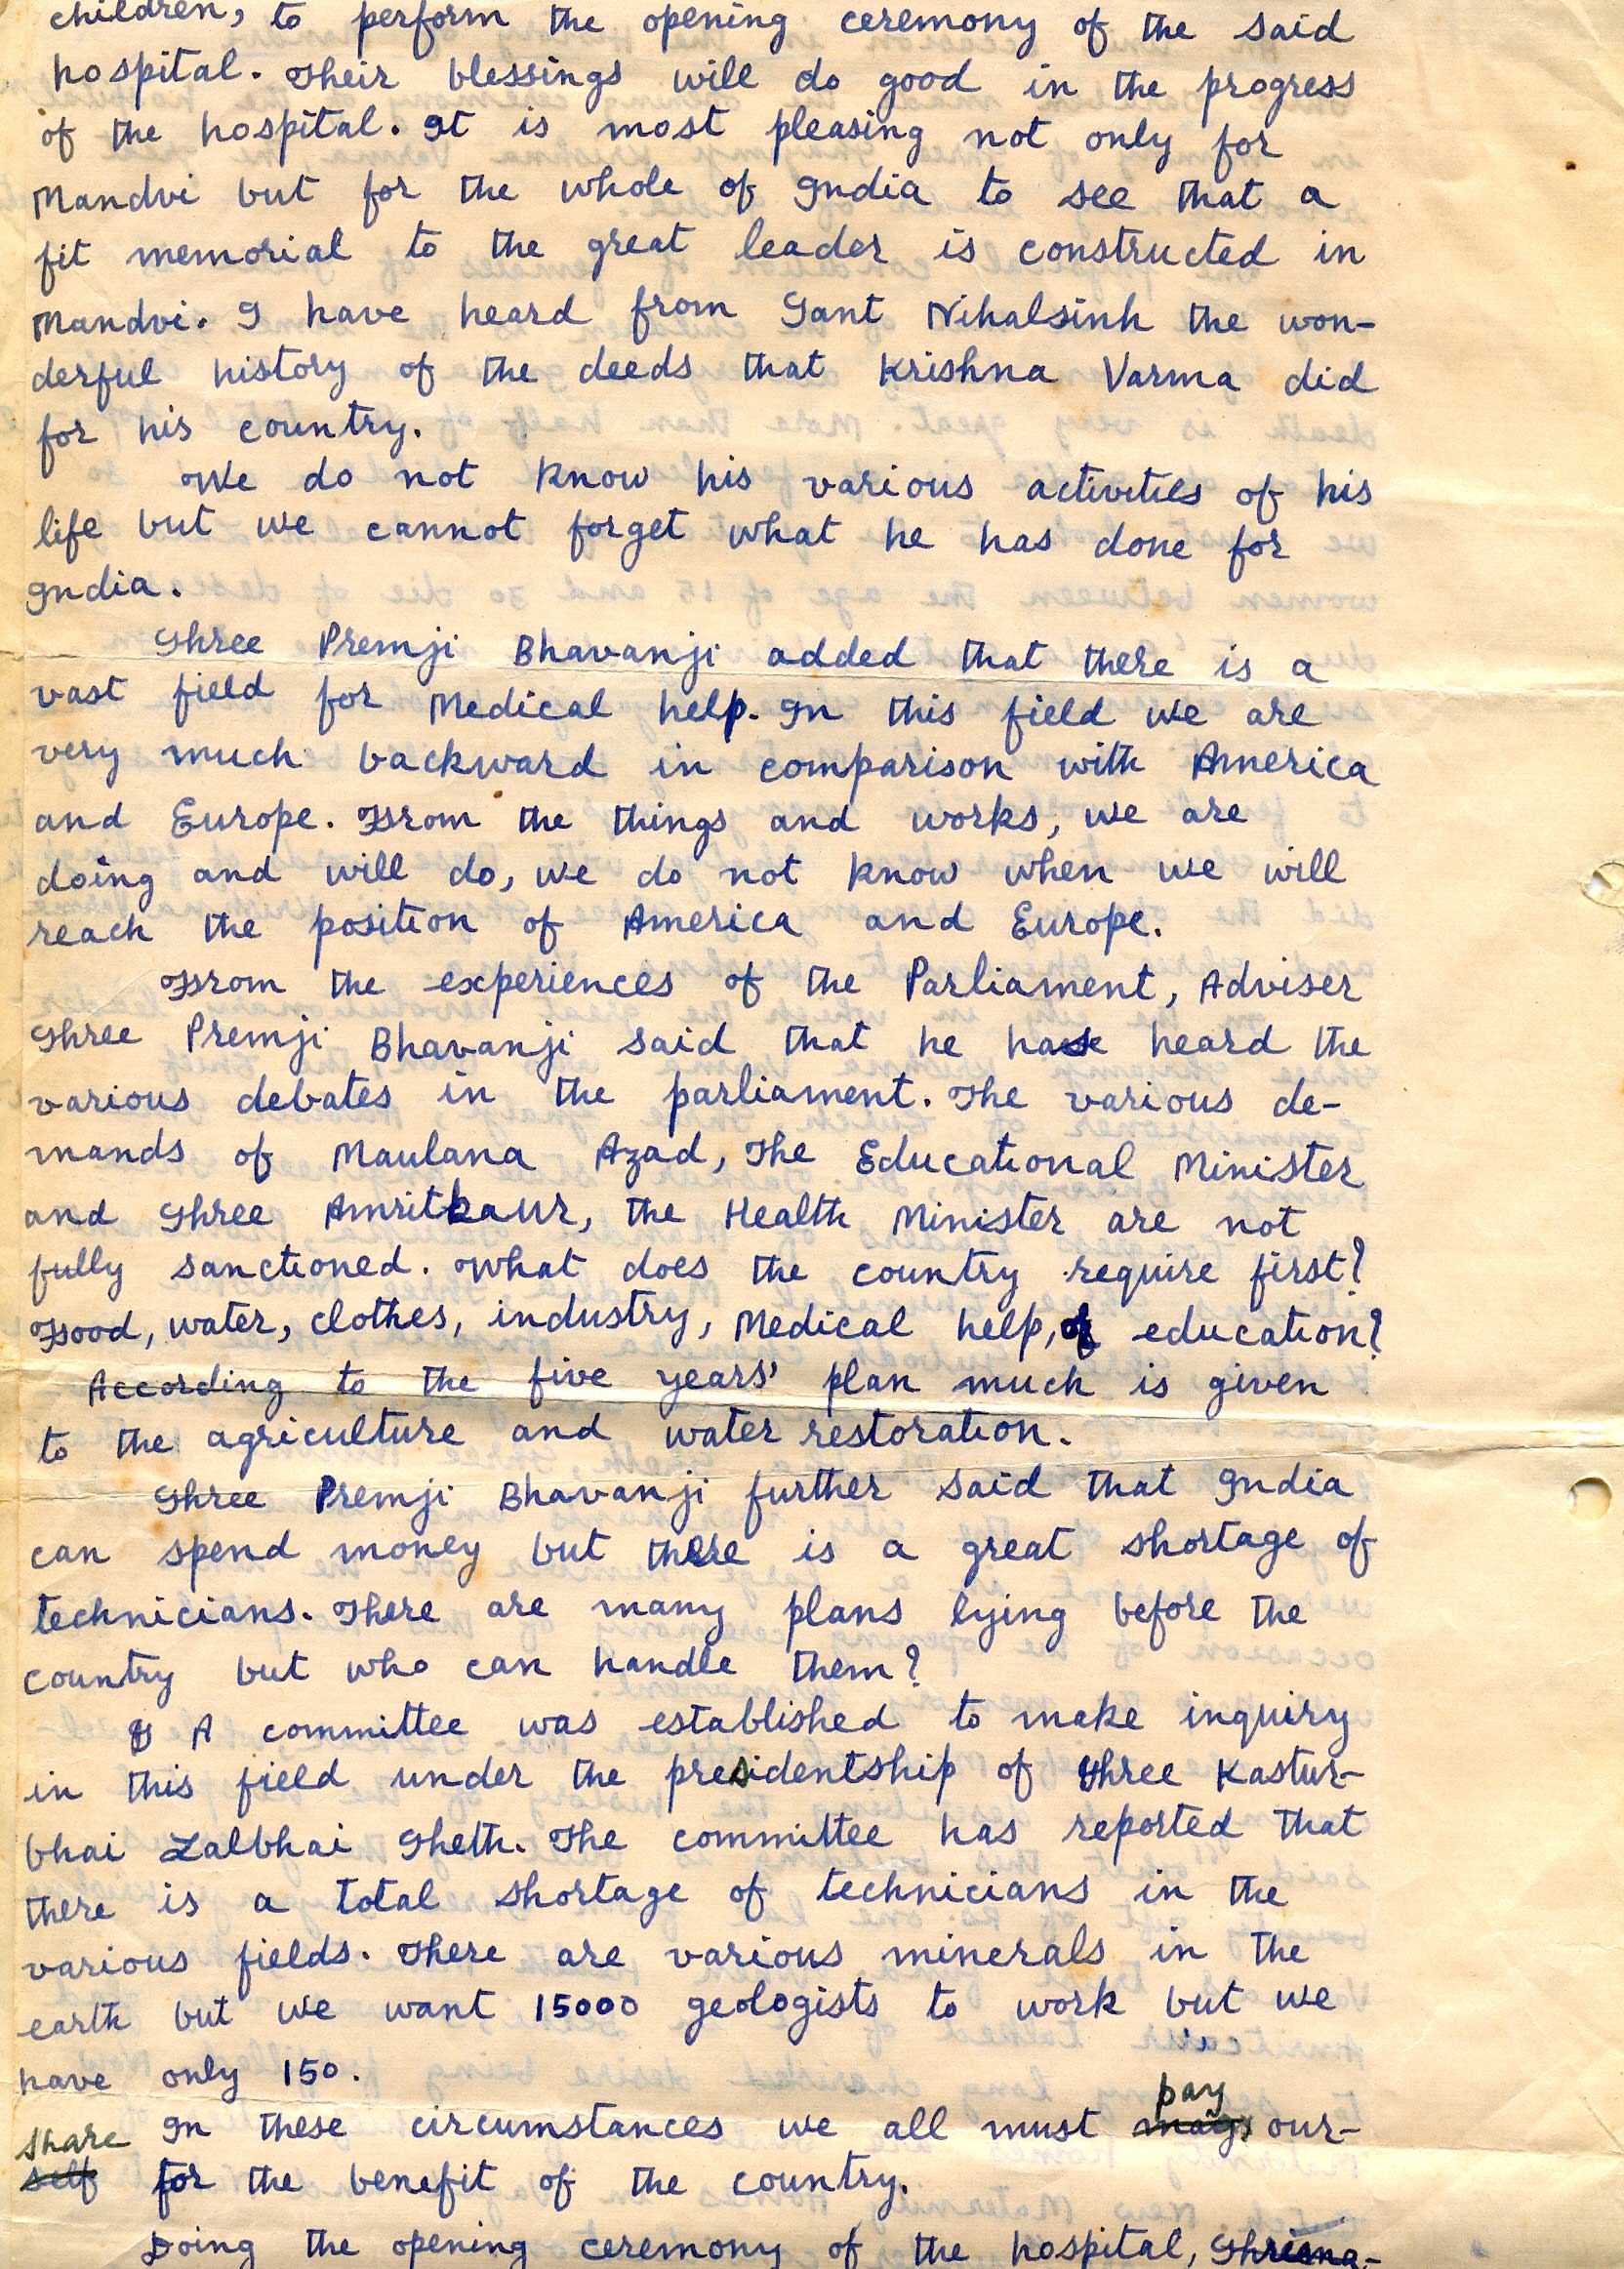 children, to perform the opening ceremony of the said
hospital. Their blessings will do good in the progress
of the hospital. It is most pleasing not only for
Mandvi but for the whole of India to see that a
fit memorial to the great leader is constructed in
Mandvi. I have heard from Sant Nihalsinh the won-
derful history of the deeds that Krishna Varma did
for his country.
We do not know his various activities of his
life but we cannot forget what he has done for
India.
Shree Premji Bhavanji added that there is a
vast field for Medical help. In this field we are
very much backward in comparison with America
and Europe. From the things and works, we are
doing and will do, we do not know when we will
reach the position of America and Europe.
From the experiences of the Parliament, Adviser
Shree Premji Bhavanji said that he has heard the
various debates in the parliament. The various de-
mands of Maulana Azad, The Educational Minister
and Shree Amritkaur, the Health Minister are not
fully sanctioned. What does the country require first?
Food, water, clothes, industry, Medical help, of education?
According to the five years' plan much is given
to the agriculture and water restoration.
Shree Premji Bhavanji further said that India
can spend money but there is a great shortage of
technicians. There are many plans lying before the
country but who can handle them?
A committee was established to make inquiry
in this field under the presidentship of Shree Kastur-
bhai Lalbhai Sheth. The committee has reported that
there is a total shortage of technicians in the
various fields. There are various minerals in the
earth but we want 15000 geologists to work but we
have only 150.
pay
In these circumstances we all must may our-
share
self for the benefit of the country.
Doing the opening ceremony of the hospital,